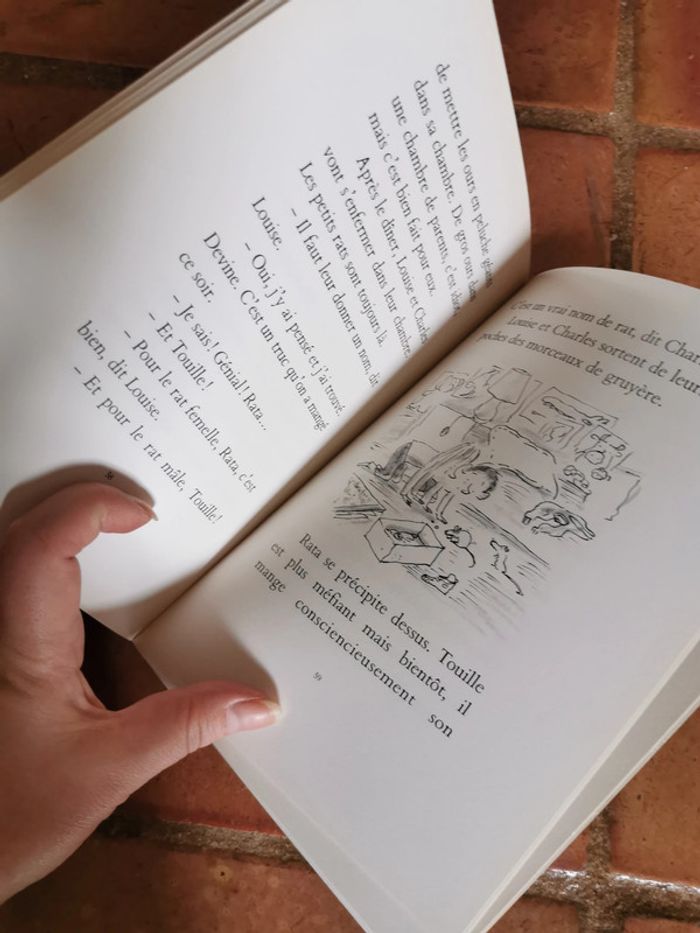 de mettre les ours en peluche géants
dans sa chambre. De gros ours dans
une chambre de parents, c'est
mais c'est bien fait pour eux.
Après le dîner, Louise et Charles
vont s'enfermer dans leur chambre.
Les petits rats sont toujours là.
– Il faut leur donner un nom, dit
Louise.
– Oui, j'y ai pensé et j'ai trouvé.
Devine. C'est un truc qu'on a mangé
ce soir.
– Je sais ! Génial ! Rata...
– Et Touille !
– Pour le rat femelle, Rata, c'est
bien, dit Louise.
– Et pour le rat mâle, Touille !
58
C'est un vrai nom de rat, dit
Louise et Charles sortent de
poches des morceaux de gruyère.
Rata se précipite dessus. Touille
est plus méfiant mais bientôt, il
mange consciencieusement son
59